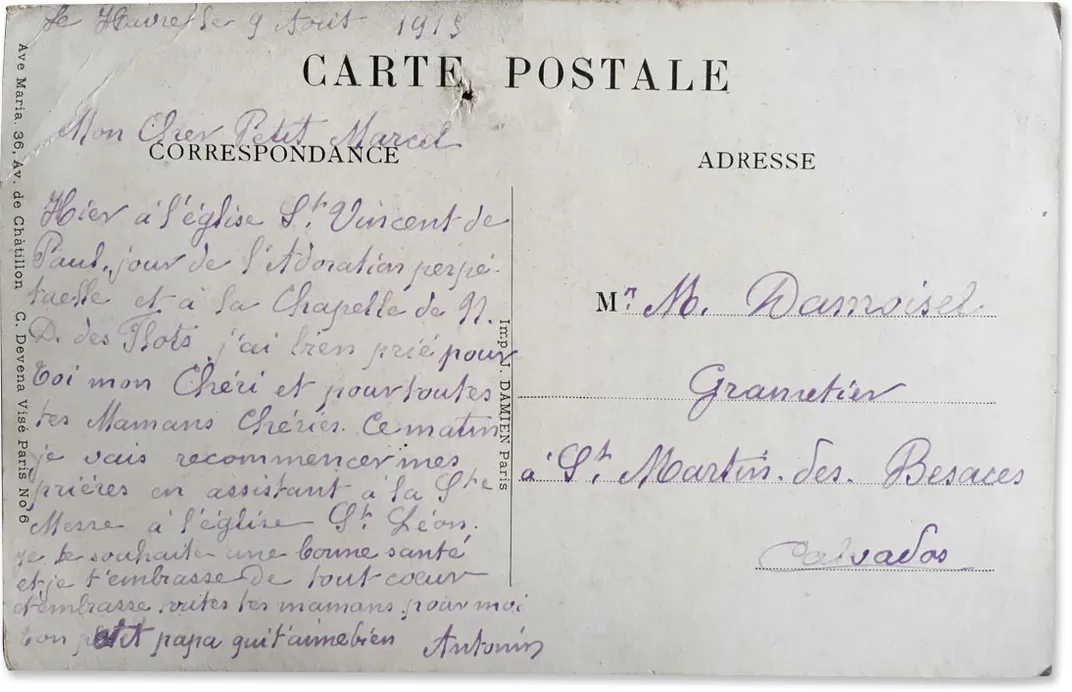 Le Havre, le 9 Août 1915
CARTE POSTALE
Mon Cher Petit Marcel
CORRESPONDANCE
Hier à l'église St. Vincent de
Paul, jour de l'Adoration perpé-
tuelle et à la Chapelle de N.
D. des Flots j'ai bien prié pour
toi mon Chéri et pour toutes
tes Mamans Chéries. Ce matin
je vais recommencer mes
prières en assistant à la Ste
Messe à l'église St. Léon.
Je te souhaite une bonne santé
et je t'embrasse de tout coeur
embrasse tes mamans pour moi
ton petit papa qui t'aime bien Antonin
ADRESSE
M. M. Damoisel
à St. Martin. des. Besaces
Calvados
Imp. J. DAMIEN Paris
Ave Maria. 36, Av. de Châtillon C. Devena Visé Paris No 6